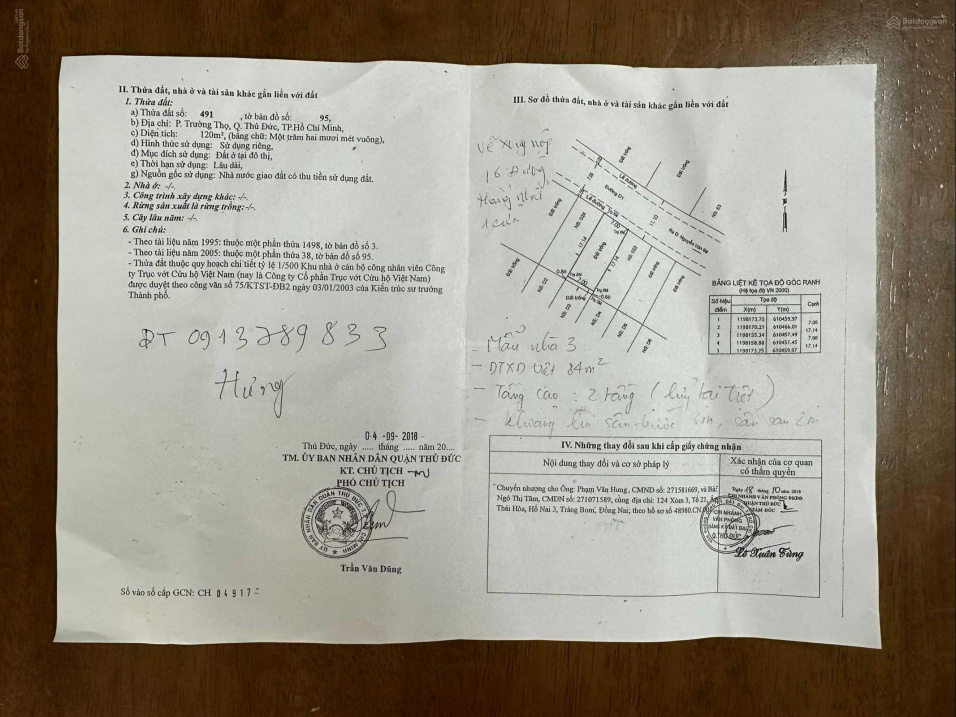 II. Thửa đất, nhà ở và tài sản khác gắn liền với đất
1. Thửa đất:
a) Thửa đất số: 491 , tờ bản đồ số: 95,
b) Địa chỉ: P. Trường Thọ, Q. Thủ Đức, TP.Hồ Chí Minh,
c) Diện tích: 120m², (bằng chữ: Một trăm hai mươi mét vuông),
d) Hình thức sử dụng: Sử dụng riêng,
đ) Mục đích sử dụng: Đất ở tại đô thị,
e) Thời hạn sử dụng: Lâu dài,
g) Nguồn gốc sử dụng: Nhà nước giao đất có thu tiền sử dụng đất.
2. Nhà ở: -/-.
3. Công trình xây dựng khác: -/-.
4. Rừng sản xuất là rừng trồng:-/-.
5. Cây lâu năm: -/-.
6. Ghi chú:
- Theo tài liệu năm 1995: thuộc một phần thửa 1498, tờ bản đồ số 3.
- Theo tài liệu năm 2005: thuộc một phần thửa 38, tờ bản đồ số 95.
- Thửa đất thuộc quy hoạch chi tiết tỷ lệ 1/500 Khu nhà ở cán bộ công nhân viên Công
ty Trục vớt Cứu hộ Việt Nam (nay là Công ty Cổ phần Trục vớt Cứu hộ Việt Nam)
được duyệt theo công văn số 75/KTST-ĐB2 ngày 03/01/2003 của Kiến trúc sư trưởng
Thành phố.
ĐT 0913789833
Hưng
04-09-2018
Thủ Đức, ngày ..... tháng ..... năm 20....
TM. ỦY BAN NHÂN DÂN QUẬN THỦ ĐỨC
KT. CHỦ TỊCH
PHÓ CHỦ TỊCH
Trần Văn Dũng
Số vào sổ cấp GCN: CH 04917
III. Sơ đồ thửa đất, nhà ở và tài sản khác gắn liền với đất
Đất trống
Đất trống
Lề đường
Đường D1
Lề đường
11.10
Ra Đ. Nguyễn Văn Bá
NĐ. 63
Đất trống
7.00
17.14
17.14
Đất trống
0.86
7.00
Đất trống
0.86
BẢNG LIỆT KÊ TỌA ĐỘ GÓC RANH
(Hệ tọa độ VN 2000)
Số hiệu điểm Tọa độ Cạnh
X(m) Y(m)
1 1198173.75 610459.97
2 1198170.23 610466.01
3 1198155.34 610457.49
4 1198158.88 610451.45
1 1198173.75 610459.97
17.14
17.14
- Mẫu nhà 3
- DTXD trệt 84m²
- Tầng cao: 2 tầng
- Khoảng lùi sân trước 3m, sân sau 2m
IV. Những thay đổi sau khi cấp giấy chứng nhận
Nội dung thay đổi và cơ sở pháp lý
Xác nhận của cơ quan
có thẩm quyền
Chuyển nhượng cho Ông: Phạm Văn Hưng, CMND số: 271581669, và Bà:
Ngô Thị Tâm, CMND số: 271071589, cùng địa chỉ: 124 Xóm 3, Tổ 21, Ấp
Thái Hòa, Hố Nai 3, Trảng Bom, Đồng Nai; theo hồ sơ số 48980.CN
Ngày 18 tháng 10 năm 2018
CHI NHÁNH VĂN PHÒNG ĐKĐĐ
QUẬN THỦ ĐỨC
GIÁM ĐỐC
CHI NHÁNH
VĂN PHÒNG
ĐĂNG KÝ ĐẤT ĐAI
Q. THỦ ĐỨC
Lê Xuân Tùng
Batdongsan
Batdongsan